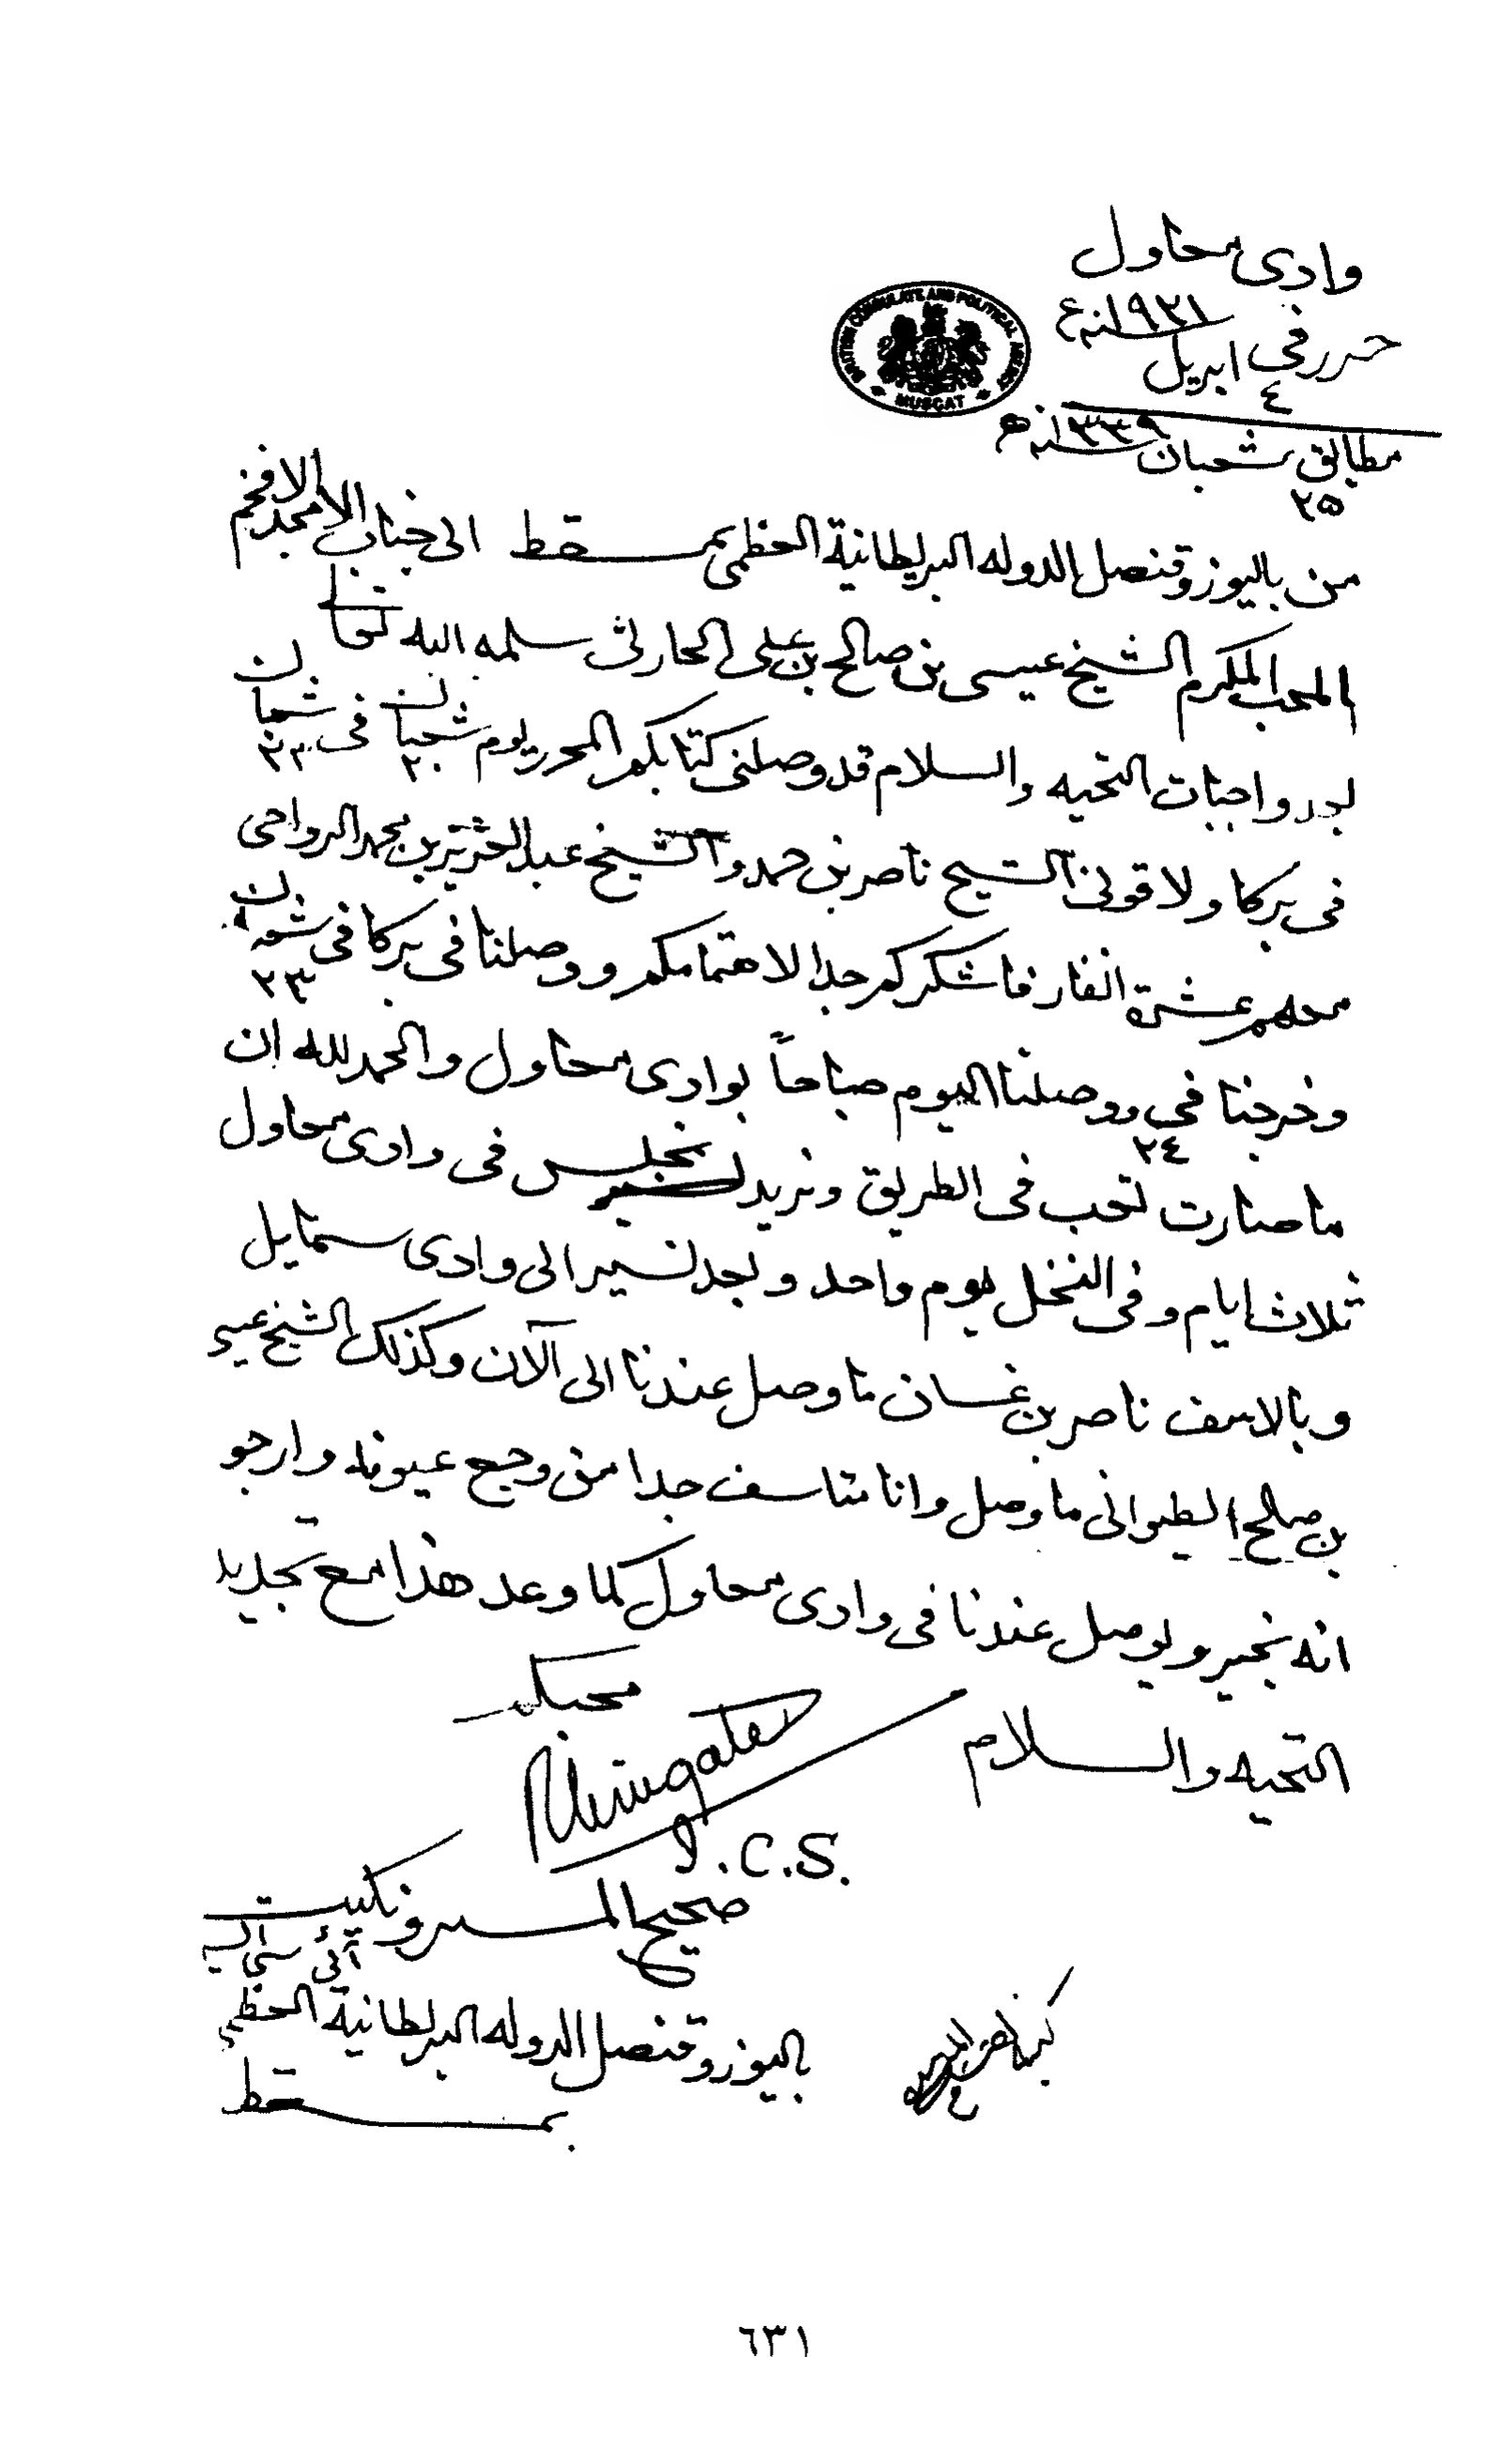 وادى معاول
حرر فى ٤ ابريل سنه ١٩٢١ع
مطابق ٢٥ شعبان سنه ١٣٣٩ه
BRITISH CONSULATE AND POLITICAL AGENCY
MUSCAT
من باليوز وقنصل الدوله البريطانية العظمى بمسقط الى جناب الامجد الافخم
المحب المكرم الشيخ عيسى بن صالح بن على الحارثى سلمه الله تعا
بعد واجبات التحيه والسلام قد وصلنى كتابكم المحرر يوم ٢٠ شعبان فى شعبان
فى بركا ولاقونى الشيخ ناصر بن حمد والشيخ عبد العزيز بن محمد الرواحى
معهم عشرة انفار فاشكركم جدا لاهتمامكم ووصلنا فى بركا فى ٢٣
وخرجنا فى ٢٤ ووصلنا اليوم صباحاً بوادى معاول والحمد لله ان
ما صارت تعب فى الطريق ونريد نجلس فى وادى معاول
ثلاث ايام وفى النخل يوم واحد وبعد نسير الى وادى سمايل
وبالاسف ناصر بن غسان ما وصل عندنا الى الآن وكذلك الشيخ عيسى
بن صالح الطيوانى ما وصل وانا متاسف جدا من وجع عيونه وارجو
انه بخير ويوصل عندنا فى وادى معاول كما وعد هذا مع تجديد
التحيه والسلام
محبكم
RWingate
I.C.S.
صحيح المستر ونكيت
آئى سى اس
باليوز وقنصل الدوله البريطانية العظمى
بمسقط
٦٣١